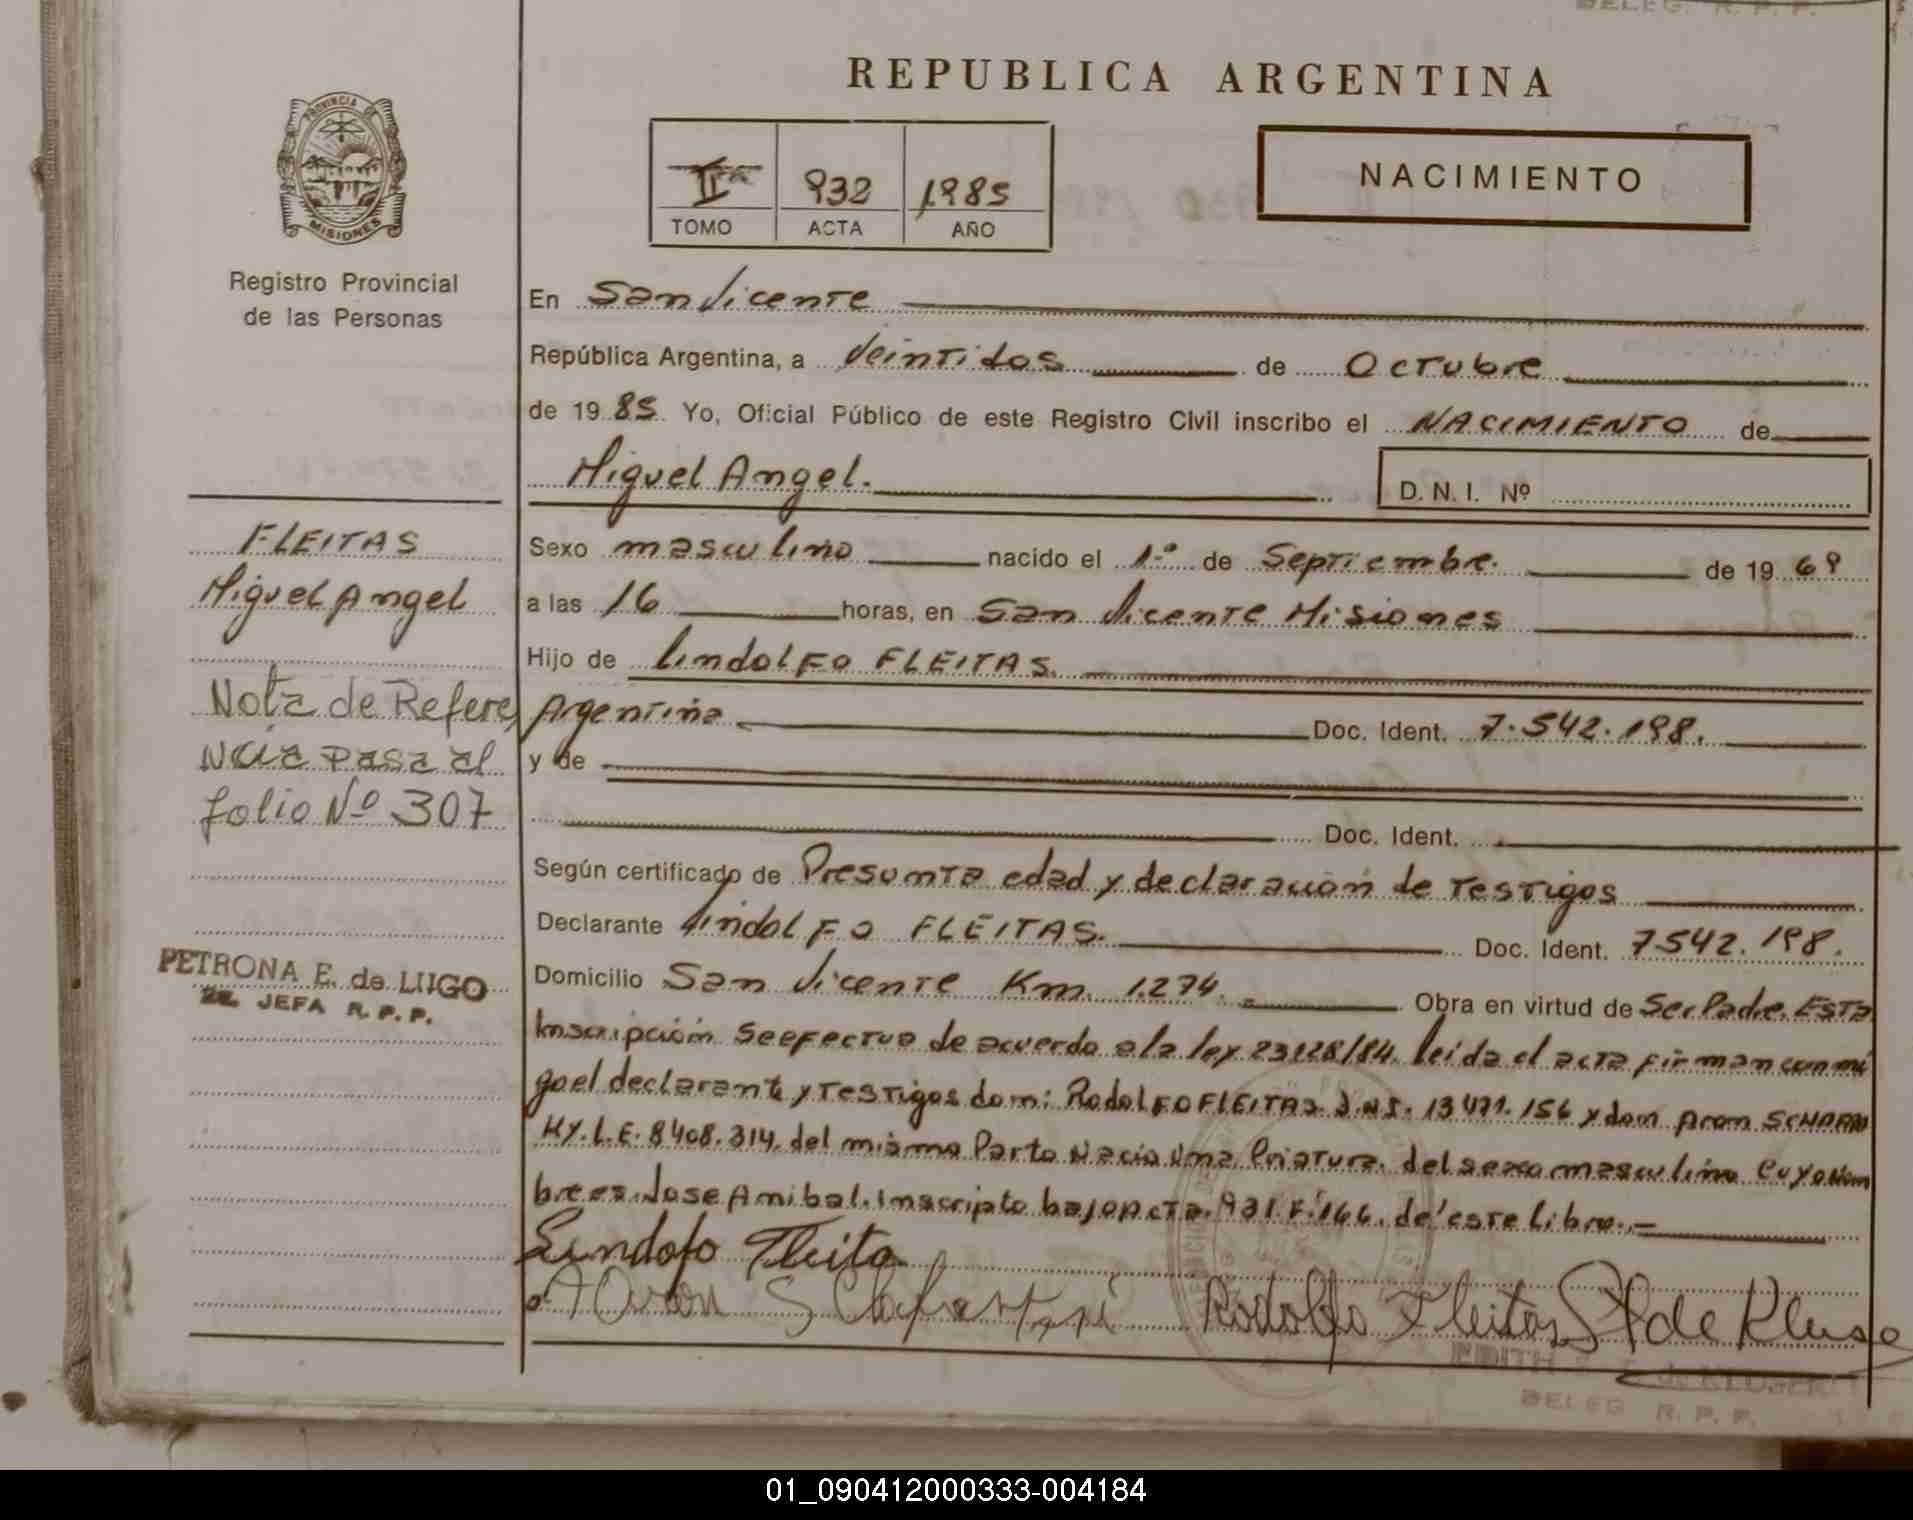 BELEG. R. P. P.
REPUBLICA ARGENTINA
PROVINCIA DE
MISIONES
Registro Provincial
de las Personas
II 932 1985
TOMO ACTA AÑO
NACIMIENTO
En San Vicente
República Argentina, a Veintidos de Octubre
de 1985 Yo, Oficial Público de este Registro Civil inscribo el NACIMIENTO de
Miguel Angel.
D. N. I. Nº
FLEITAS
Miguel Angel
Nota de Refere
Ncia pasa al
folio Nº 307
PETRONA E. de LUGO
JEFA R. P. P.
Sexo masculino nacido el 1º de Septiembre. de 1969
a las 16 horas, en San Vicente Misiones
Hijo de Lindolfo FLEITAS.
Argentina Doc. Ident. 7.542.198.
y de
Doc. Ident.
Según certificado de Presunta edad y declaración de Testigos
Declarante Lindolfo FLEITAS. Doc. Ident. 7542.198.
Domicilio San Vicente Km. 1.274. Obra en virtud de Ser Padre. Esta
Inscripción se efectua de acuerdo a la ley 23128/84. leida el acta firman conmi
go el declarante y Testigos don: Rodolfo FLEITAS D.N.I. 13471.156 y don Aron
KY. L.E. 8408.314. del mismo Parto Nacio Una Criatura. del sexo masculino Cuyo Nom
bre es. Jose Anibal. Inscripto bajo Acta. 931. F. 166. de este libro.-
Lindolfo Fleita
Rodolfo Fleitas de Kluse
EDITH
BELEG R. P. P.
01_090412000333-004184